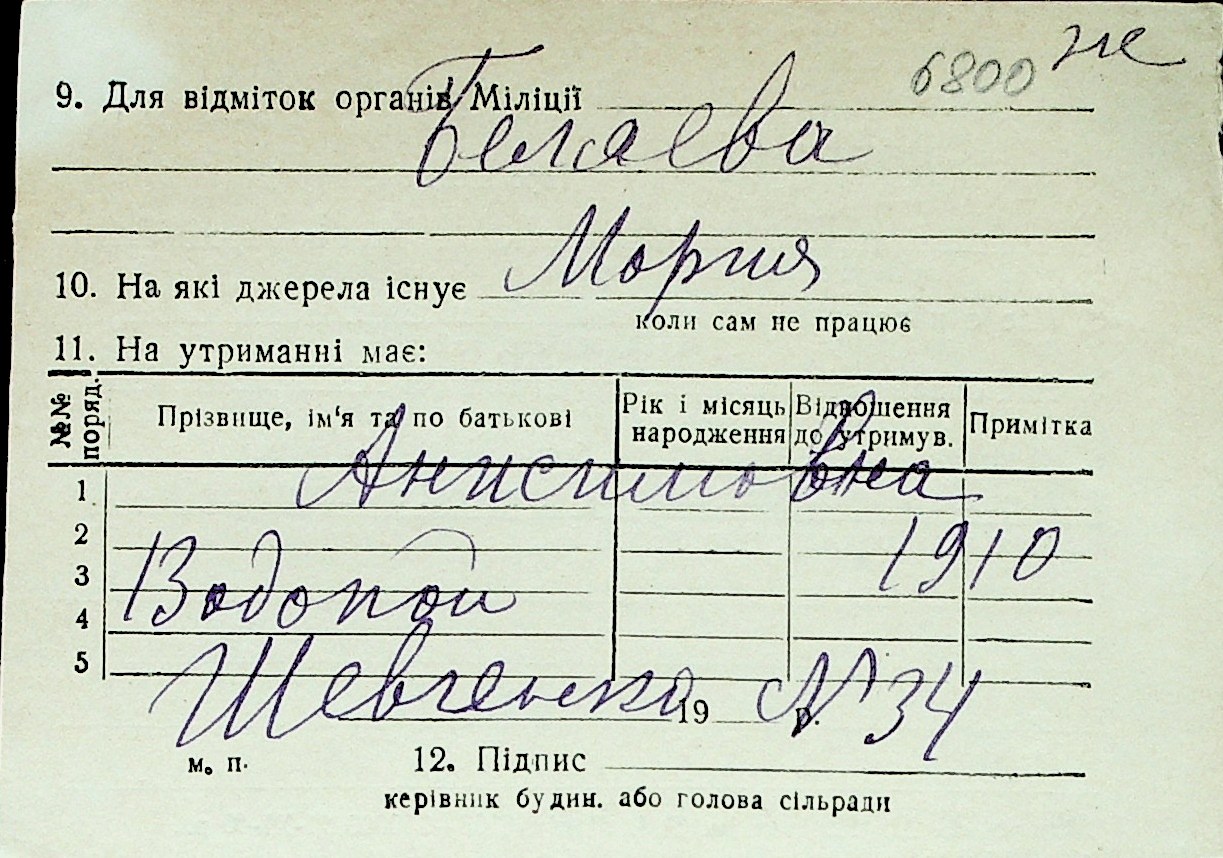 6800 же
9. Для відміток органів Міліції
Беляева
Мория
10. На які джерела існує
коли сам не працює
11. На утриманні має:
№№ поряд. Прізвище, ім'я та по батькові Рік і місяць народження Відношення до утримув. Примітка
Анисимовна
1
2
1910
3
Водопой
4
5
Шевченко 19 р. № 34
м. п. 12. Підпис
керівник будин. або голова сільради